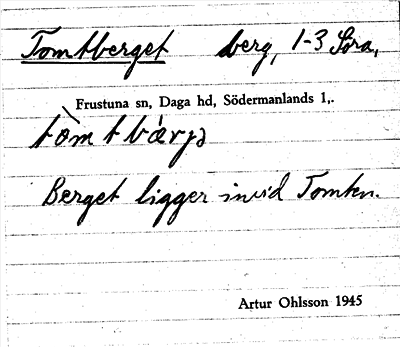 Tomtberget berg, 1-3 Sora,
Frustuna sn, Daga hd, Södermanlands l,.
tòmtbærjə
Berget ligger invid Tomten.
Artur Ohlsson 1945